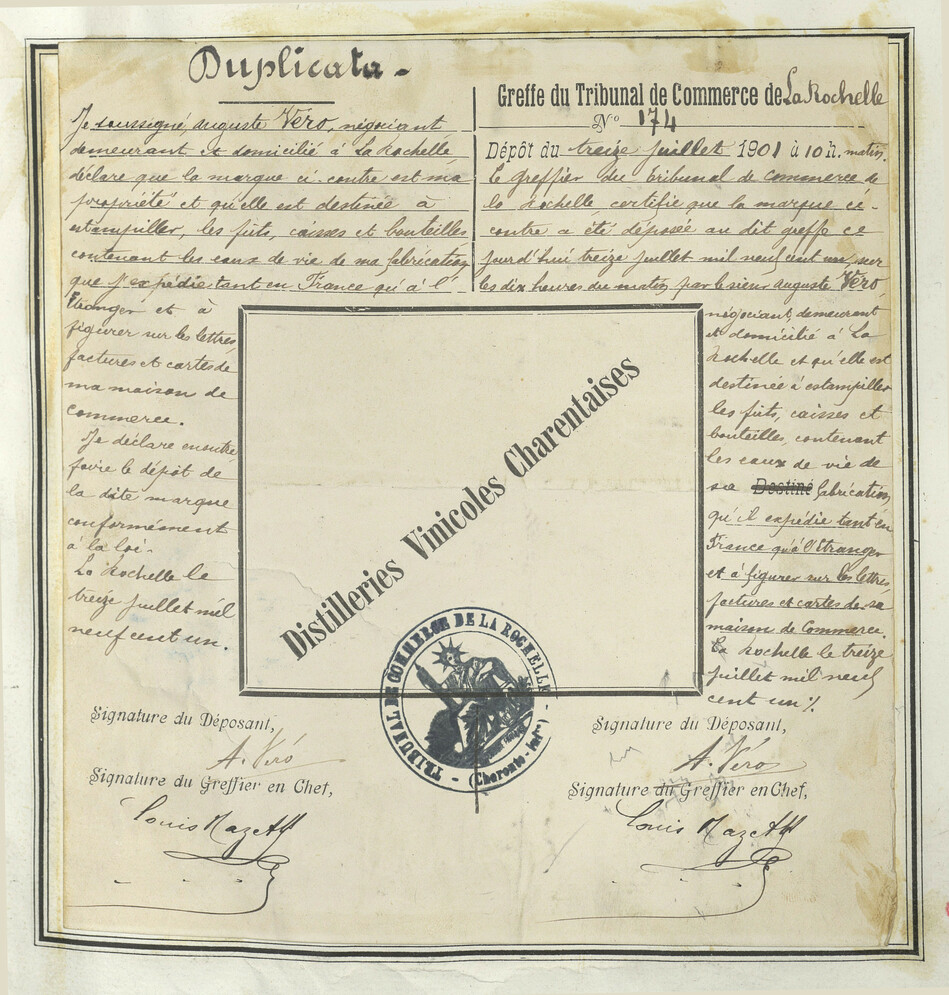 Duplicata -
Je soussigné, Auguste Vero, négociant
demeurant et domicilié à La Rochelle,
déclare que la marque ci-contre est ma
propriété et qu'elle est destinée à
estampiller, les fûts, caisses et bouteilles
contenant les eaux de vie de ma fabrication
que j'expédie tant en France qu'à l'
Etranger et à
figurer sur les lettres,
factures et cartes de
ma maison de
commerce.
Je déclare en outre
faire le dépôt de
la dite marque
conformément
à la loi.
La Rochelle le
treize juillet mil
neuf cent un.
Greffe du Tribunal de Commerce de La Rochelle
N° 174
Dépôt du treize juillet 1901 à 10 h. matin.
Le greffier du tribunal de commerce de
la Rochelle certifie que la marque ci-
contre a été déposée au dit greffe ce
jourd'hui treize juillet mil neuf cent un sur
les dix heures du matin par le sieur Auguste Vero
négociant, demeurant
et domicilié à La
Rochelle et qu'elle est
destinée à estampiller
les fûts, caisses et
bouteilles, contenant
les eaux de vie de
sa Destiné fabrication,
qu'il expédie tant en
France qu'à l'Etranger
et à figurer sur les lettres
factures et cartes de sa
maison de Commerce.
La Rochelle le treize
juillet mil neuf
cent un %.
Distilleries Vinicoles Charentaises
TRIBUNAL DE COMMERCE DE LA ROCHELLE
- (Charente-Infre) -
Signature du Déposant,
A. Véro
Signature du Greffier en Chef,
Louis
Signature du Déposant,
A. Véro
Signature du Greffier en Chef,
Louis